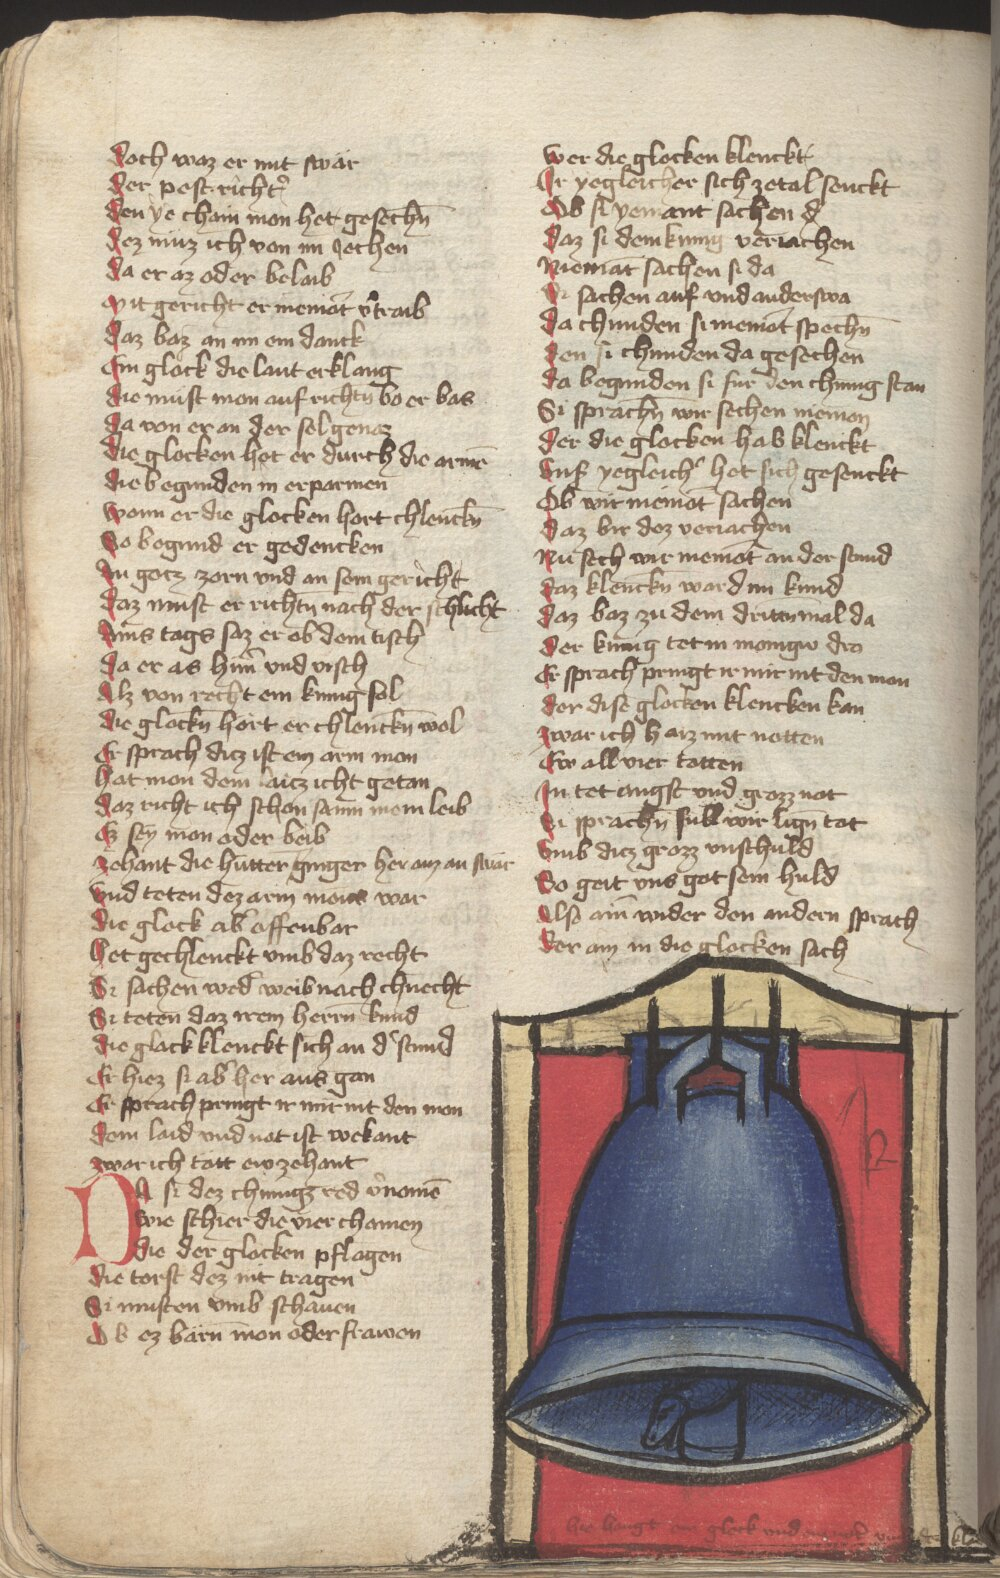 Doch waz er mit swär
Der pest richtˀ
Den ye chain mon het gesechn̄
Dez müz ich von im Jechen
Da er az oder belaib
Mit gericht er niemāt vˀtraib
Daz baz an im ein danck
Ein glock die laut erklang
Die müst mon auf richtn̄ bo er bas
Da von er an der sel genaz
Die glocken het er durch die armē
Die begunden in erparmen
Wonn er die glocken hort chlenckn̄
So begund er gedencken
In gotz zorn vnd an sein gericht
Daz must er richtn̄ nach der schlicht
Ains tags saz er ob dem tisch
Da er as hün̄ vnd visch
Alz von recht ein kunig sol
Die glockn̄ hort er chlenckn̄ wol
Er sprach diez ist ein arm mon
Hat mon dem laicz icht getan
Daz richt ich schon sann mein leib
Ez sey mon oder beib
Zehant die hütter ginger her auz an swar
Vnd teten dez arm mons war
Die glock abˀ offenbar
Het gechlenckt vmb daz recht
Si sachen wedˀ weib nach chnecht
Si teten daz irem herrn kund
Die glock klenckt sich an dˀ stund
Er hiez si abˀ her aus gan
Er sprach pringt ir mir nit den mon
Dem laid vnd not ist bekant
Zwar ich tött ew zehant
DA si dez chunigz red vˀnomē
Wie schier die vier chamen
Die der glocken pflagen
Die torst dez nit tragen
Si musten vmb schauen
Ob ez bärn̄ mon oder frawen
Wer die glocken klenckt
Ir yegleicher sich zetal senckt
Ob si yemant sachen d
Daz si dem kunig veriachen
Niemāt sachen si da
Si sachen auf vnd anderswa
Da chunden si niemāt spechn̄
Den si chunden da gesechen
Da begunden si für den chunig stan
Si sprachn̄ wir sechen niemon
Der die glocken hab klenckt
Vnsˀ yegleichˀ het sich gesenckt
Ob wir niemāt sachen
Daz bir dez veriachen
Nu sech wir niemāt an der stund
Daz klenckn̄ ward im kund
Daz baz zu dem dritten mal da
Der kunig tet in monigw dro
Er sprach pringt ir mir nit den mon
Der dise glocken klencken kan
Zwar ich haiz mit notten
Ew all vier totten
In tet angst vnd grozz not
Si sprachn̄ süll wir lign tot
Vmb diez grozz vnschuld
So geit vns got sein huld
Also ain wider den andern sprach
Der ain in die glocken sach
hie hangt ein glock vnd